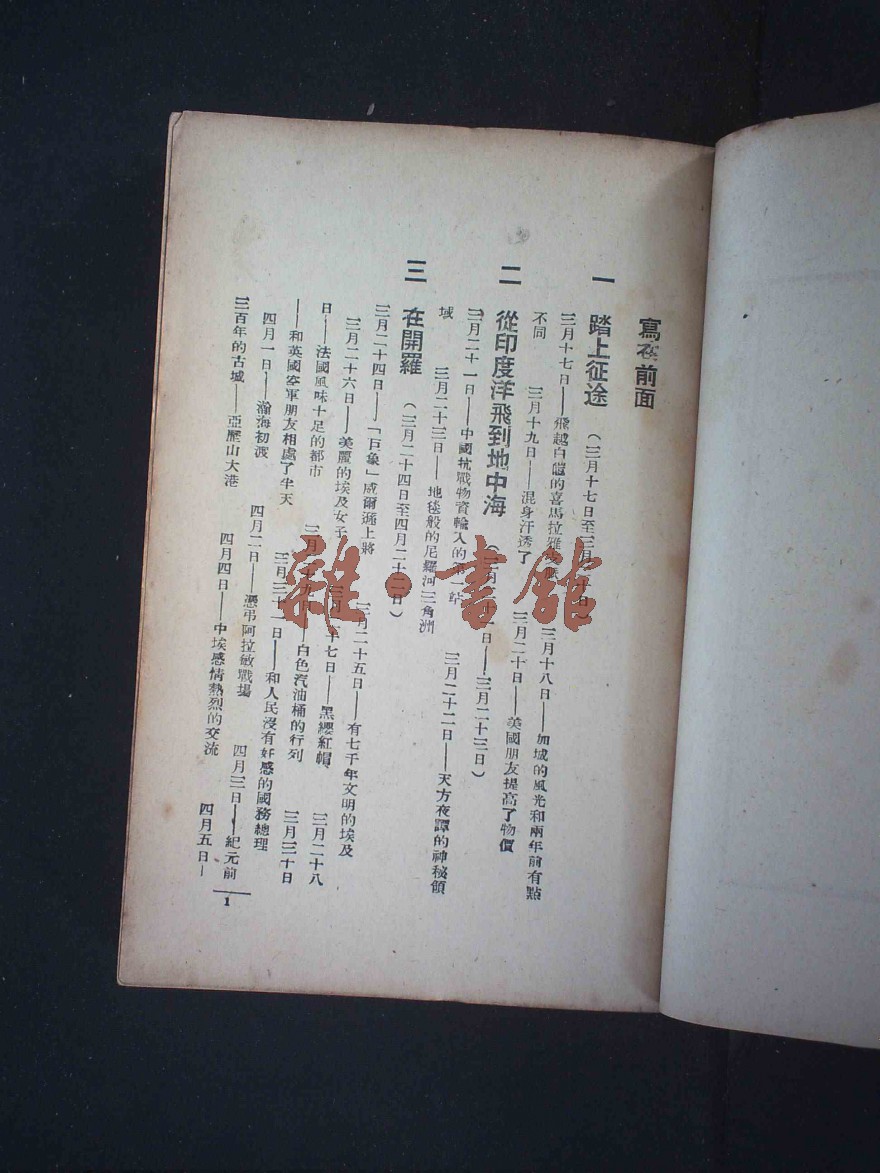 寫在前面
一 踏上征途 (三月十七日至三月二十日)
三月十七日——飛越白皚的喜馬拉雅 三月十八日——加城的風光和兩年前有點
不同 三月十九日——混身汗透了 三月二十日——美國朋友提高了物價
二 從印度洋飛到地中海 (三月二十一日——三月二十三日)
三月二十一日——中國抗戰物資輸入的第一站 三月二十二日——天方夜譚的神秘領
域 三月二十三日——地毯般的尼羅河三角洲
三 在開羅 (三月二十四日至四月二十二日)
三月二十四日——「巨象」威爾遜上將 三月二十五日——有七千年文明的埃及
三月二十六日——美麗的埃及女子 三月二十七日——黑纓紅帽 三月二十八
日——法國風味十足的都市 三月二十九日——白色汽油桶的行列 三月三十日
——和英國空軍朋友相處了半天 三月三十一日——和人民沒有好感的國務總理
四月一日——瀚海初渡 四月二日——憑弔阿拉敏戰場 四月三日——紀元前
三百年的古城——亞歷山大港 四月四日——中埃感情熱烈的交流 四月五日—
1
雜·書館